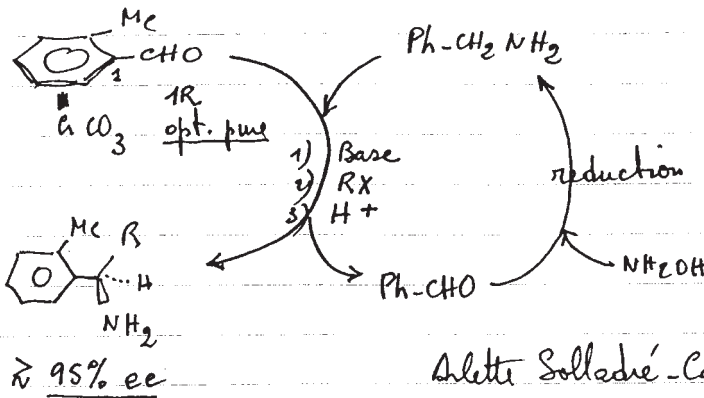 Me
CHO
1
Cr CO3
1R
opt. pure
Ph-CH2 NH2
1) Base
2) RX
3) H+
reduction
Me
R
H
NH2
Ph-CHO
NH2OH
≥ 95% ee
Arlette Solladié-Ca